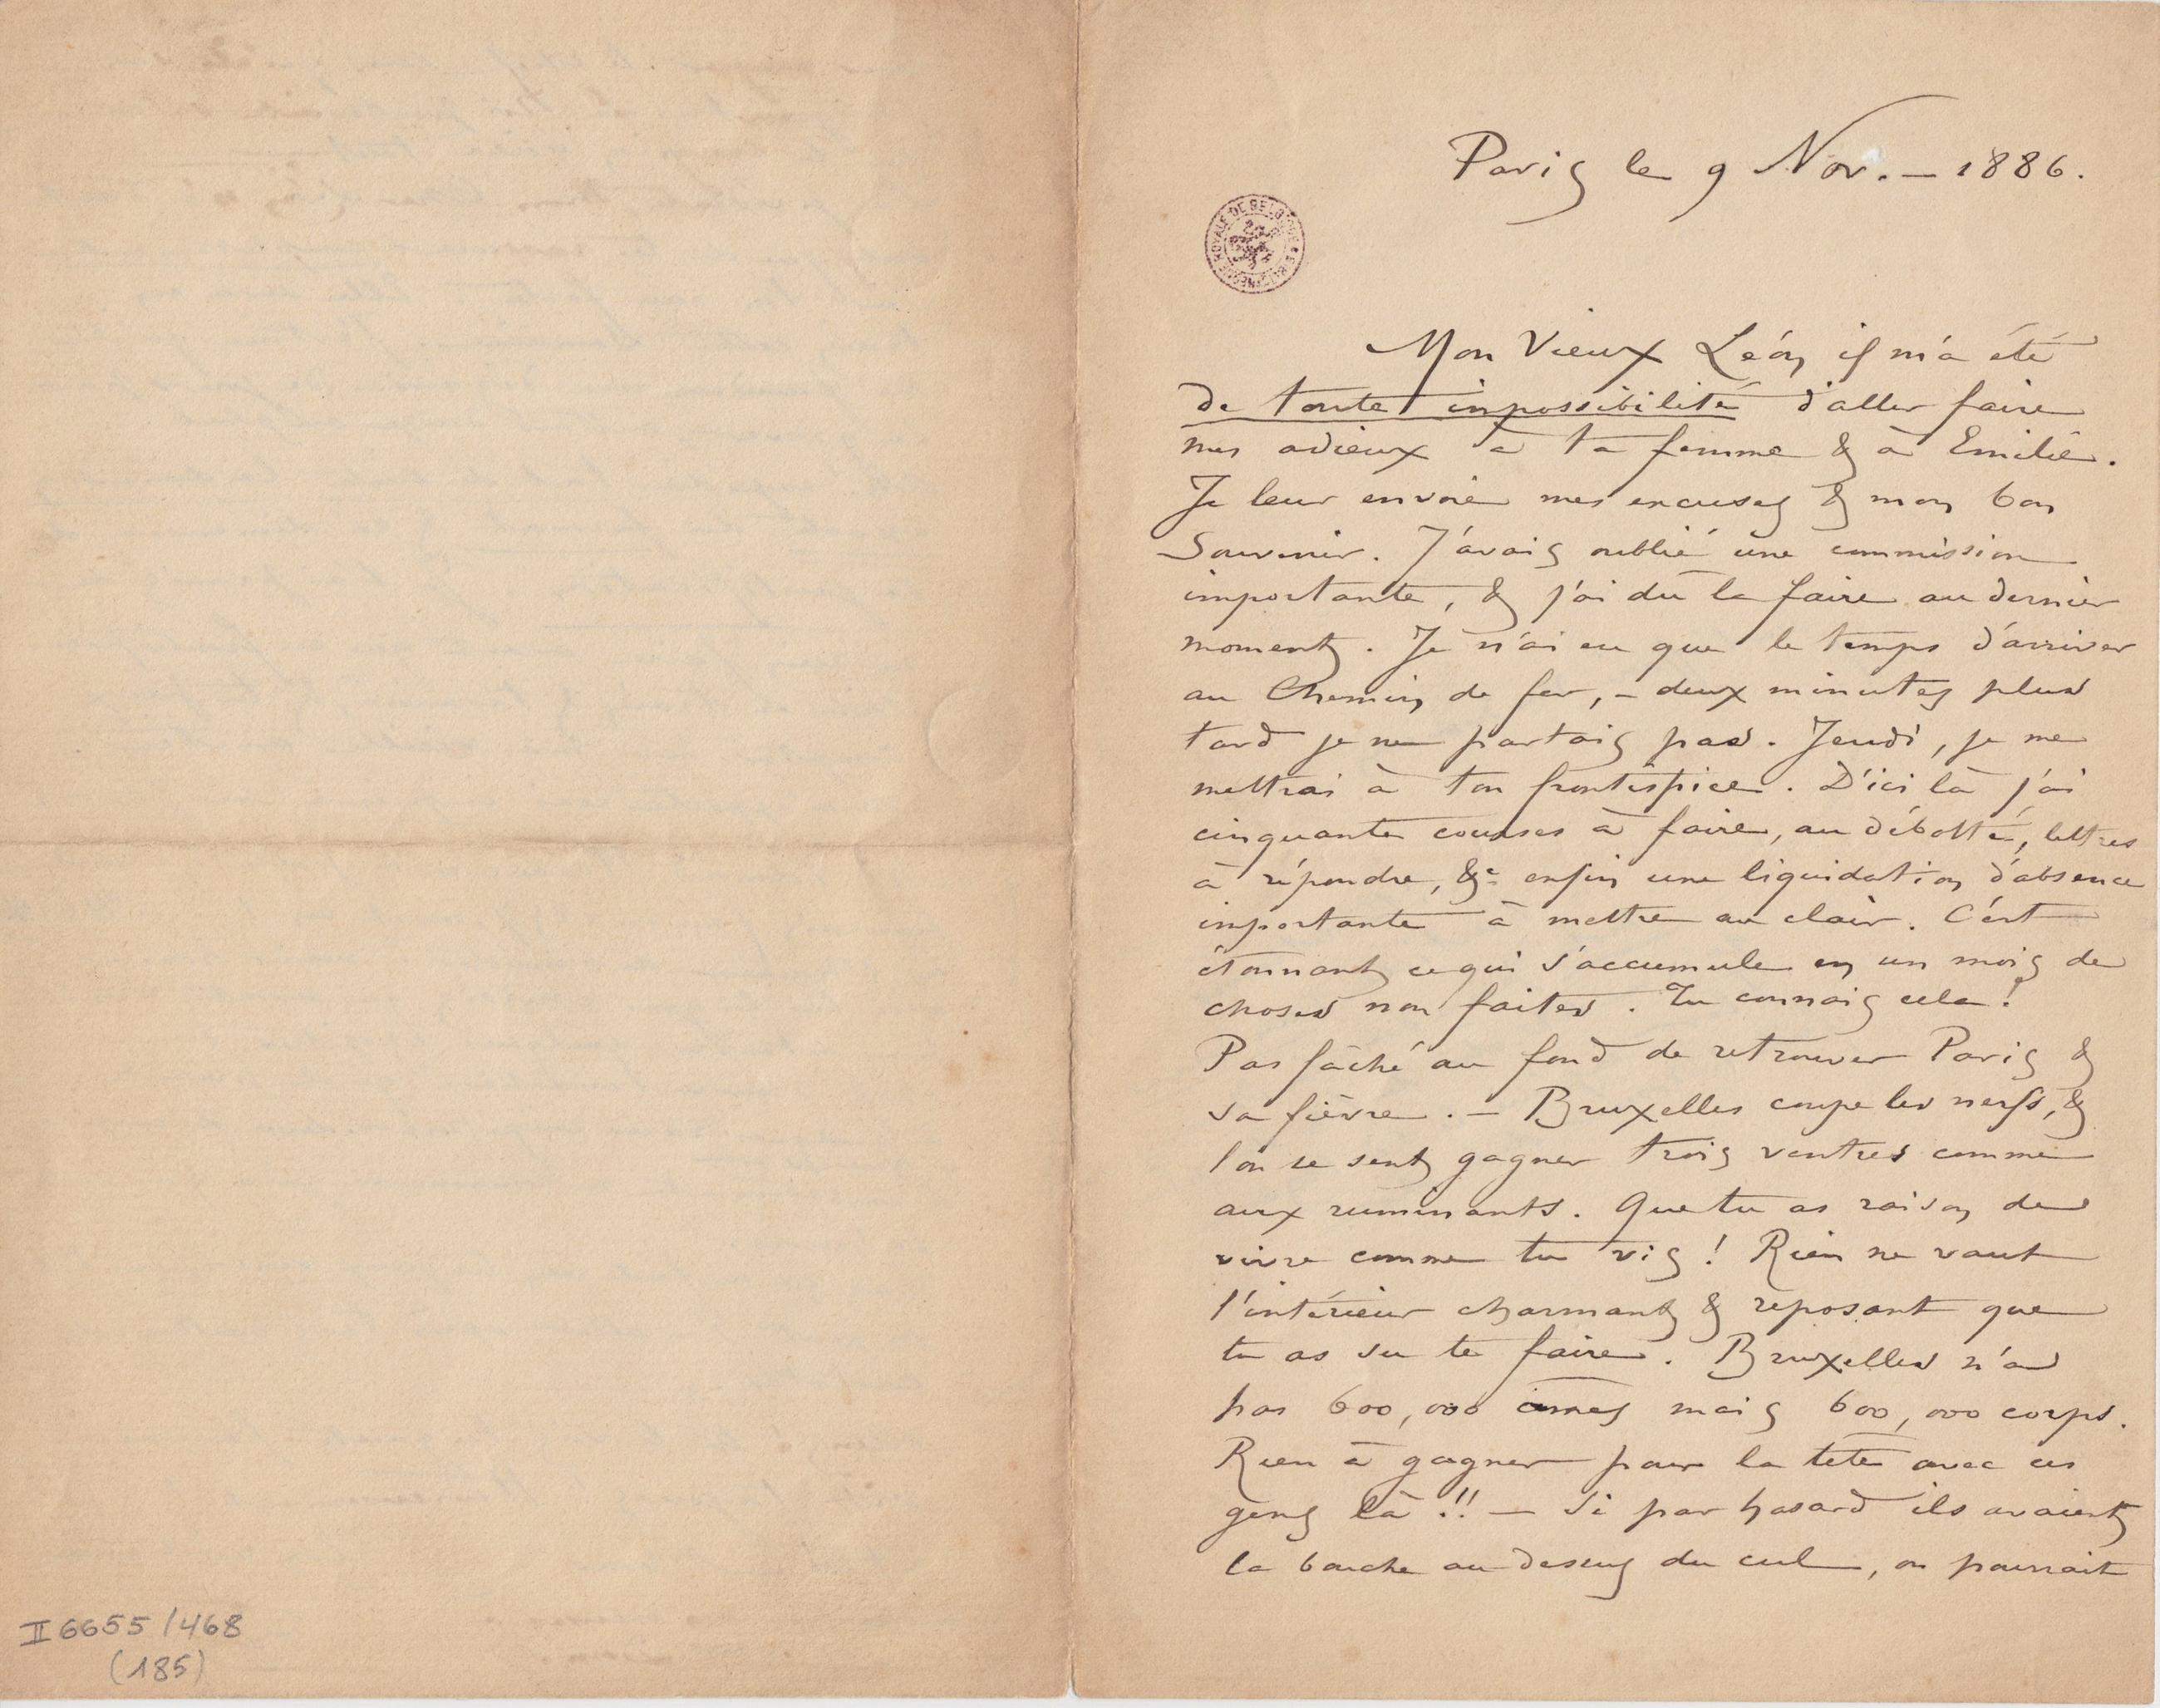 Paris le 9 Nov. – 1886.
BIBLIOTHÈQUE ROYALE DE BELGIQUE
Mon Vieux Léon, il m'a été
de toute impossibilité d'aller faire
mes adieux à ta femme & à Emilie.
Je leur envoie mes excuses & mon bon
Souvenir. J'avais oublié une commission
importante, & j'ai dû la faire au dernier
moment. Je n'ai eu que le temps d'arriver
au Chemin de fer, – deux minutes plus
tard je ne partais pas. Jeudi, je me
mettrai à ton frontispice. D'ici là j'ai
cinquante courses à faire, au débotté, lettres
à répondre, &c enfin une liquidation d'absence
importante à mettre au clair. C'est
étonnant ce qui s'accumule en un mois de
choses non faites. Tu connais cela!
Pas fâché au fond de retrouver Paris &
sa fièvre. – Bruxelles coupe les nerfs, &
l'on se sent gagner trois ventres comme
aux ruminants. Que tu as raison de
vivre comme tu vis! Rien ne vaut
l'intérieur charmant & reposant que
tu as su te faire. Bruxelles n'a
pas 600,000 âmes mais 600,000 corps.
Rien à gagner pour la tête avec ces
gens là!! – Si par hasard ils avaient
la bouche au dessus du cul, on pourrait
II 6655/468
(185)